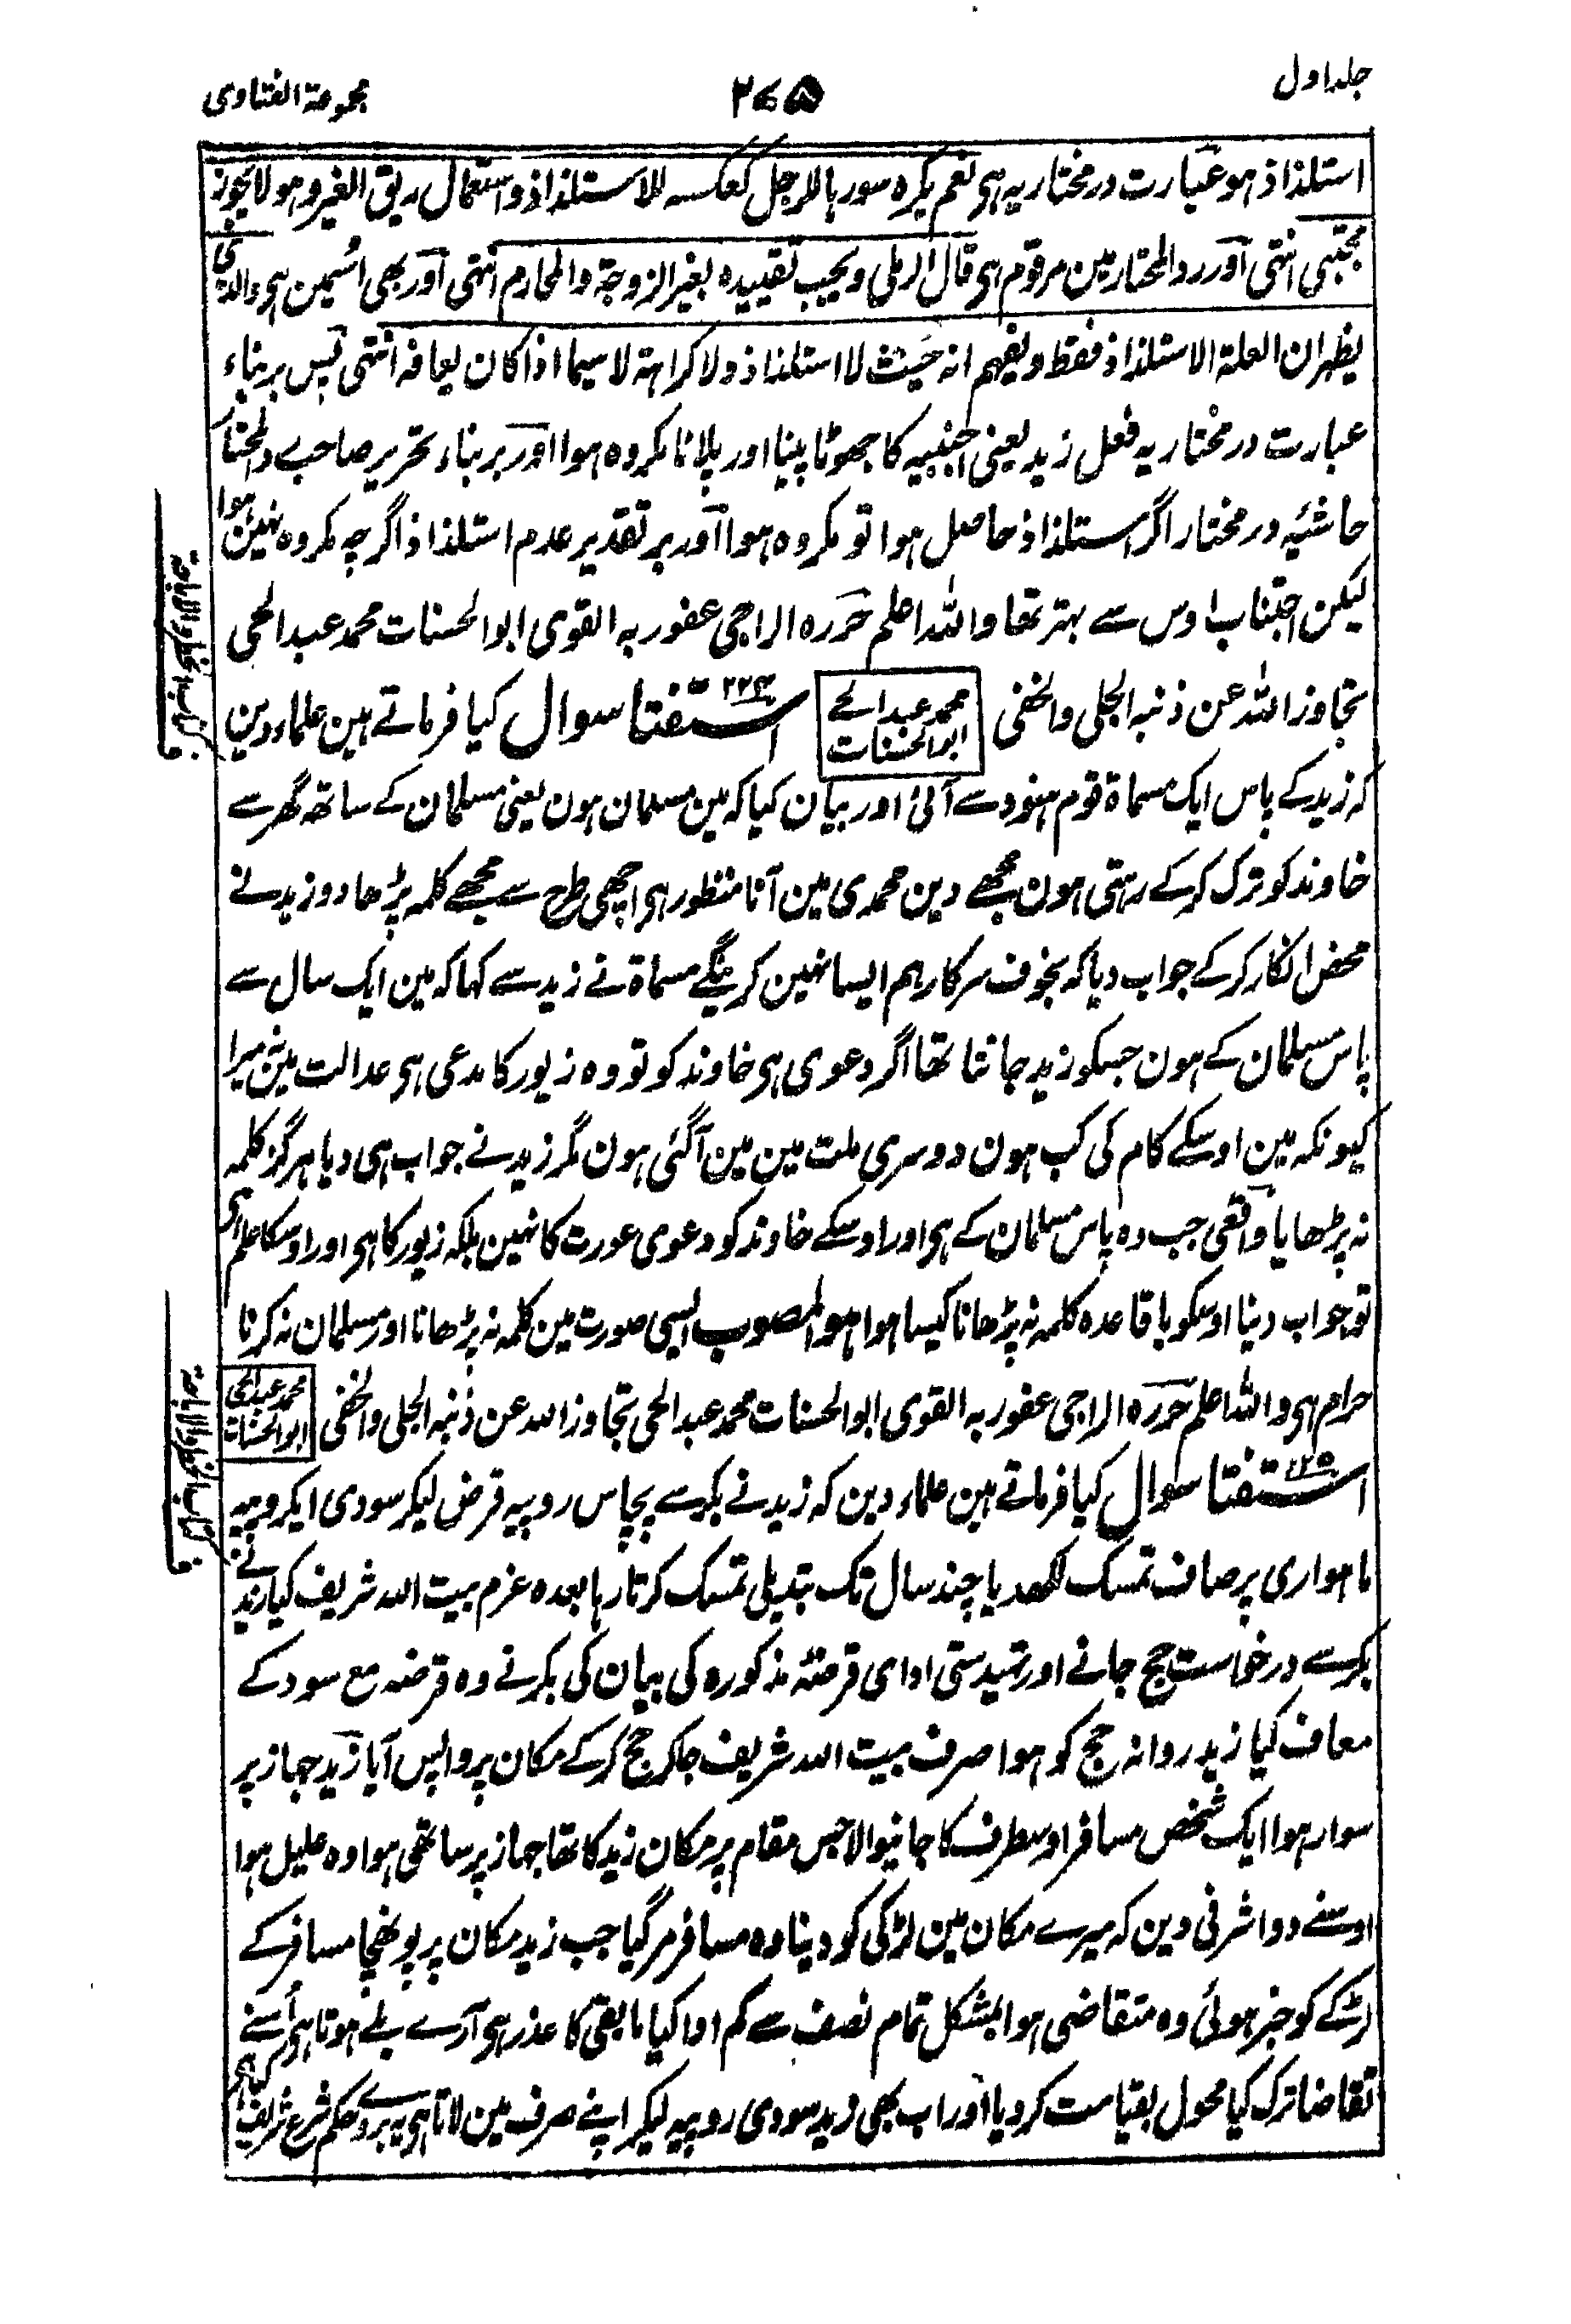 جلد اول
۲۷۵
مجموعۃ الفتاوی
استلذاذ ہو عبارت درمختار یہ ہی نعم یکرہ سورہا للرجل کعکسہ للاستلذاذ و استعمال ریق الغیر وہو لا یجوز
مجتبی انتہی اور رد المحتار مین مرقوم ہی قال الرملی ویجب تقییدہ بغیر الزوجۃ والمحارم انتہی اور بھی اسمین ہی والذی
یظہر ان العلۃ الاستلذاذ فقط ویفہم انہ حیث لا استلذاذ ولا کراہۃ لا سیما اذا کان یعافہ انتہی پس بربناء
عبارت درمختار یہ فعل زید یعنی اجنبیہ کا جھوٹا پینا اور پلانا مکروہ ہوا اور بربناء تحریر صاحب رد المحتار
حاشیہ درمختار اگر استلذاذ حاصل ہوا تو مکروہ ہوا اور بر تقدیر عدم استلذاذ اگرچہ مکروہ نہین ہوا
لیکن اجتناب اوس سے بہتر تھا واللہ اعلم حررہ الراجی عفو ربہ القوی ابو الحسنات محمد عبد الحی
تجاوز اللہ عن ذنبہ الجلی والخفی
محمد عبد الحی
ابو الحسنات
استفتا ۲۲۴ سوال کیا فرماتے ہین علماء دین
کہ زید کے پاس ایک مسماۃ قوم ہنود سے آئی اور بیان کیا کہ مین مسلمان ہون یعنی مسلمان کے ساتھ گھر سے
خاوند کو ترک کر کے رہتی ہون مجھے دین محمدی مین آنا منظور ہی اچھی طرح سے مجھے کلمہ پڑھا دو زید نے
محض انکار کر کے جواب دیا کہ بخوف سرکار ہم ایسا نہین کرینگے مسماۃ نے زید سے کہا کہ مین ایک سال سے
پاس مسلمان کے ہون جسکو زید جانتا تھا اگر دعوی ہی خاوند کو تو وہ زیور کا مدعی ہی عدالت مین نہ میرا
کیونکہ مین اوسکے کام کی کب ہون دوسری ملت مین مین آگئی ہون مگر زید نے جواب ہی دیا ہرگز کلمہ
نہ پڑھایا واقعی جب وہ پاس مسلمان کے ہی اور اوسکے خاوند کو دعوی عورت کا نہین بلکہ زیور کا ہی اور اوسکا علم ہی
تو جواب دینا اوسکو باقاعدہ کلمہ نہ پڑھانا کیسا ہوا ہو المصوب ایسی صورت مین کلمہ نہ پڑھانا اور مسلمان نہ کرنا
حرام ہی واللہ اعلم حررہ الراجی عفو ربہ القوی ابو الحسنات محمد عبد الحی تجاوز اللہ عن ذنبہ الجلی والخفی
محمد عبد الحی
ابو الحسنات
استفتا سوال کیا فرماتے ہین علماء دین کہ زید نے بکر سے پچاس روپیہ قرض لیکر سودی ایکروپیہ
ماہواری پر صاف تمسک لکھدیا چند سال تک تبدیلی تمسک کرتا رہا بعدہ عزم بیت اللہ شریف کیا زید نے
بکر سے درخواست حج جانے اور تہیدستی ادای قرضہ مذکورہ کی بیان کی بکر نے وہ قرضہ مع سود کے
معاف کیا زید روانہ حج کو ہوا صرف بیت اللہ شریف جاکر حج کر کے مکان پر واپس آیا زید جہاز پر
سوار ہوا ایک شخص مسافر اوسطرف کا جانیوالا جس مقام پر مکان زید کا تھا جہاز پر ساتھی ہوا وہ علیل ہوا
اوسنے دو اشرفی دین کہ میرے مکان مین لڑکی کو دینا وہ مسافر مرگیا جب زید مکان پر پونہچا مسافر کے
لڑکے کو خبر ہوئی وہ متقاضی ہوا بمشکل تمام نصف سے کم ادا کیا مابقی کا عذر ہی آرے بلے ہوتا ہی اُسنے
تقاضا ترک کیا محول بقیامت کر دیا اور اب بھی زید سودی روپیہ لیکر اپنے صرف مین لاتا ہی یہ بروے حکم شرع شریف کیا ہی